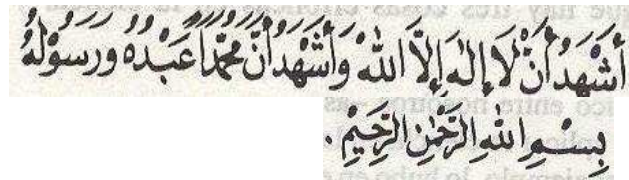 أَشْهَدُ أَنْ لَا إِلٰهَ إِلَّا اللهُ وَأَشْهَدُ أَنَّ مُحَمَّدًا عَبْدُهُ وَرَسُولُهُ
بِسْمِ اللهِ الرَّحْمٰنِ الرَّحِيْمِ.